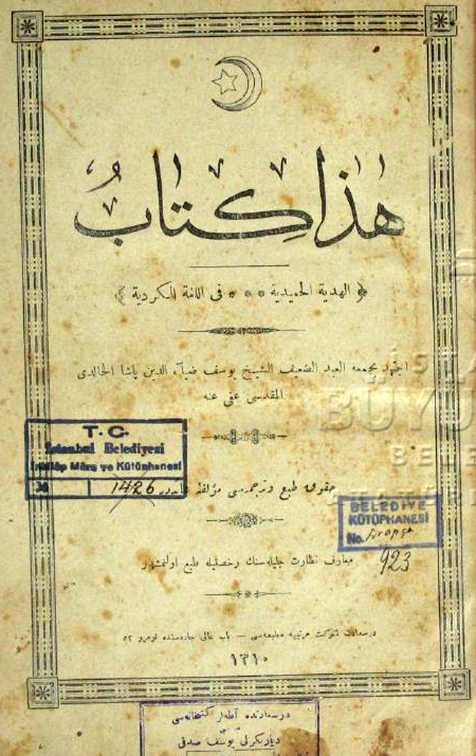 هذا كتاب
﴿ الهدية الحميدية * * * فى اللغة الكردية ﴾
اجتهد بجمعه العبد الضعيف الشيخ يوسف ضياء الدين پاشا الخالدى
المقدسى عفى عنه
T. C.
İstanbul Belediyesi
İnkılâp Müze ve Kütüphanesi
1426
حقوق طبع وترجمه‌سى مؤلفنه
BELEDİYE
KÜTÜPHANESİ
No.
923
معارف نظارت جليله‌سنك رخصتيله طبع اولنمشدر
درسعادت شركت مرتبيه مطبعه‌سى — باب عالى جاده‌سنده نومرو ٥٢
١٣١٠
درسعادتده
كتبخانه‌سى
ديار بكرلى يوسف صدقى
BÜYÜ
BELE